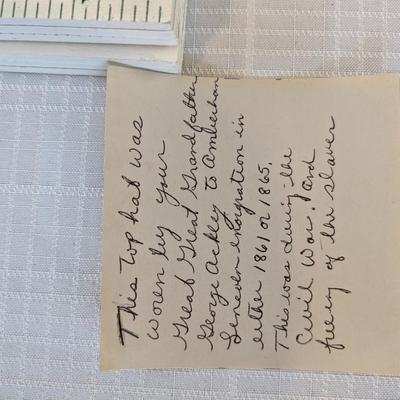 This Top hat was
woren by your
Great Great Grandfather
George Ackley to Amberham
Lincoln inogration in
either 1861 or 1865.
This was during the
Civil War. and
freeing of the slaves